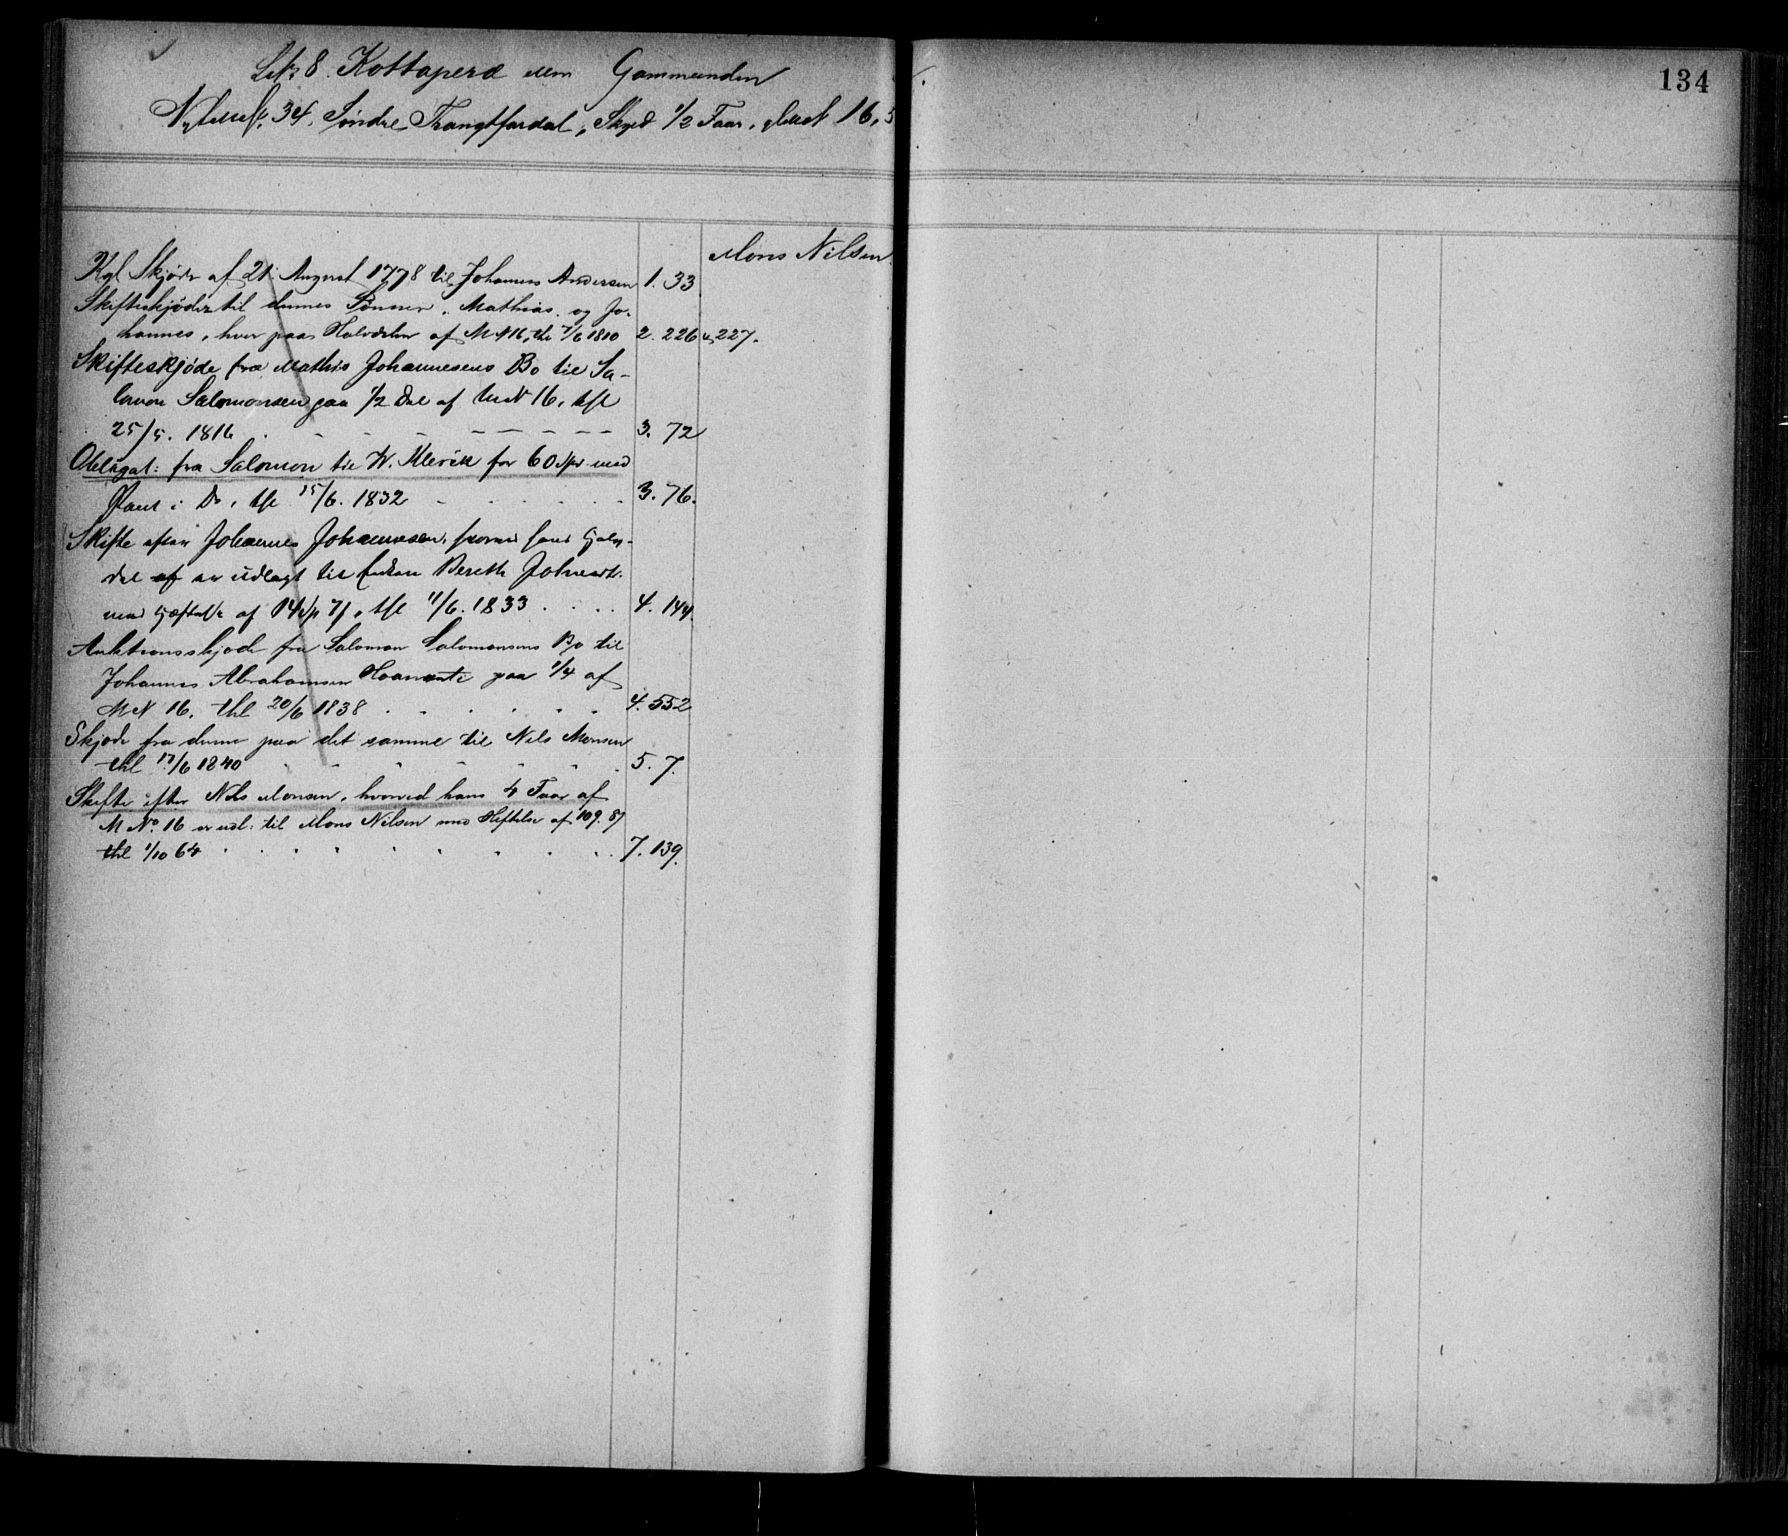 134
Litr 8. Kottaperæ
34. Søndre Trangtfordal, Skyld 1/2 Faar, 16, 5
Mons Nilsen
Kgl Skjøde af 21 August 1778 til Johannes Andersen 1. 33
Skifteskjøder til dennes Sønner, Mathias og Jo-
hannes, hver paa Halvdelen af M N 16, thl 7/6 1810 2. 226 & 227.
Skifteskjøde fra Mathis Johannesens Bo til Sa-
lomon Salomonsen paa 1/2 Del af M N 16, thl
25/5. 1816 3. 72
Obligat: fra Salomon til W. Klerck for 60 Spd med
Pant i Do, thl 15/6. 1832 3. 76.
Skifte efter Johannes Johannesen, hvorved hans Halv-
del er udlagt til Enken Bereth
med Heftelse af 14 Sp 7 f, thl 11/6. 1833 4. 144
Auktionsskjøde fra Salomon Salomonsens Bo til
Johannes Abrahamsen paa 1/4 af
M N 16. thl 20/6 1838 4. 552
Skjøde fra denne paa det samme til Nils Monsen
thl 17/6 1840 5. 7.
Skifte efter Nils Monsen, hvorved hans 4 Faar af
M No. 16 er udl. til Mons Nilsen mod Heftelse af 109. 87
thl 1/10 64 7. 139.